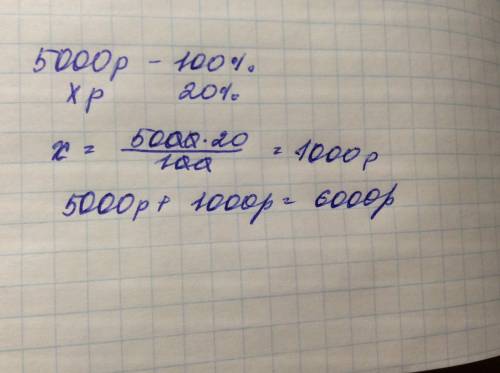 5000р - 100%
х р 20%
х = 5000·20 / 100 = 1000р
5000р + 1000р = 6000р